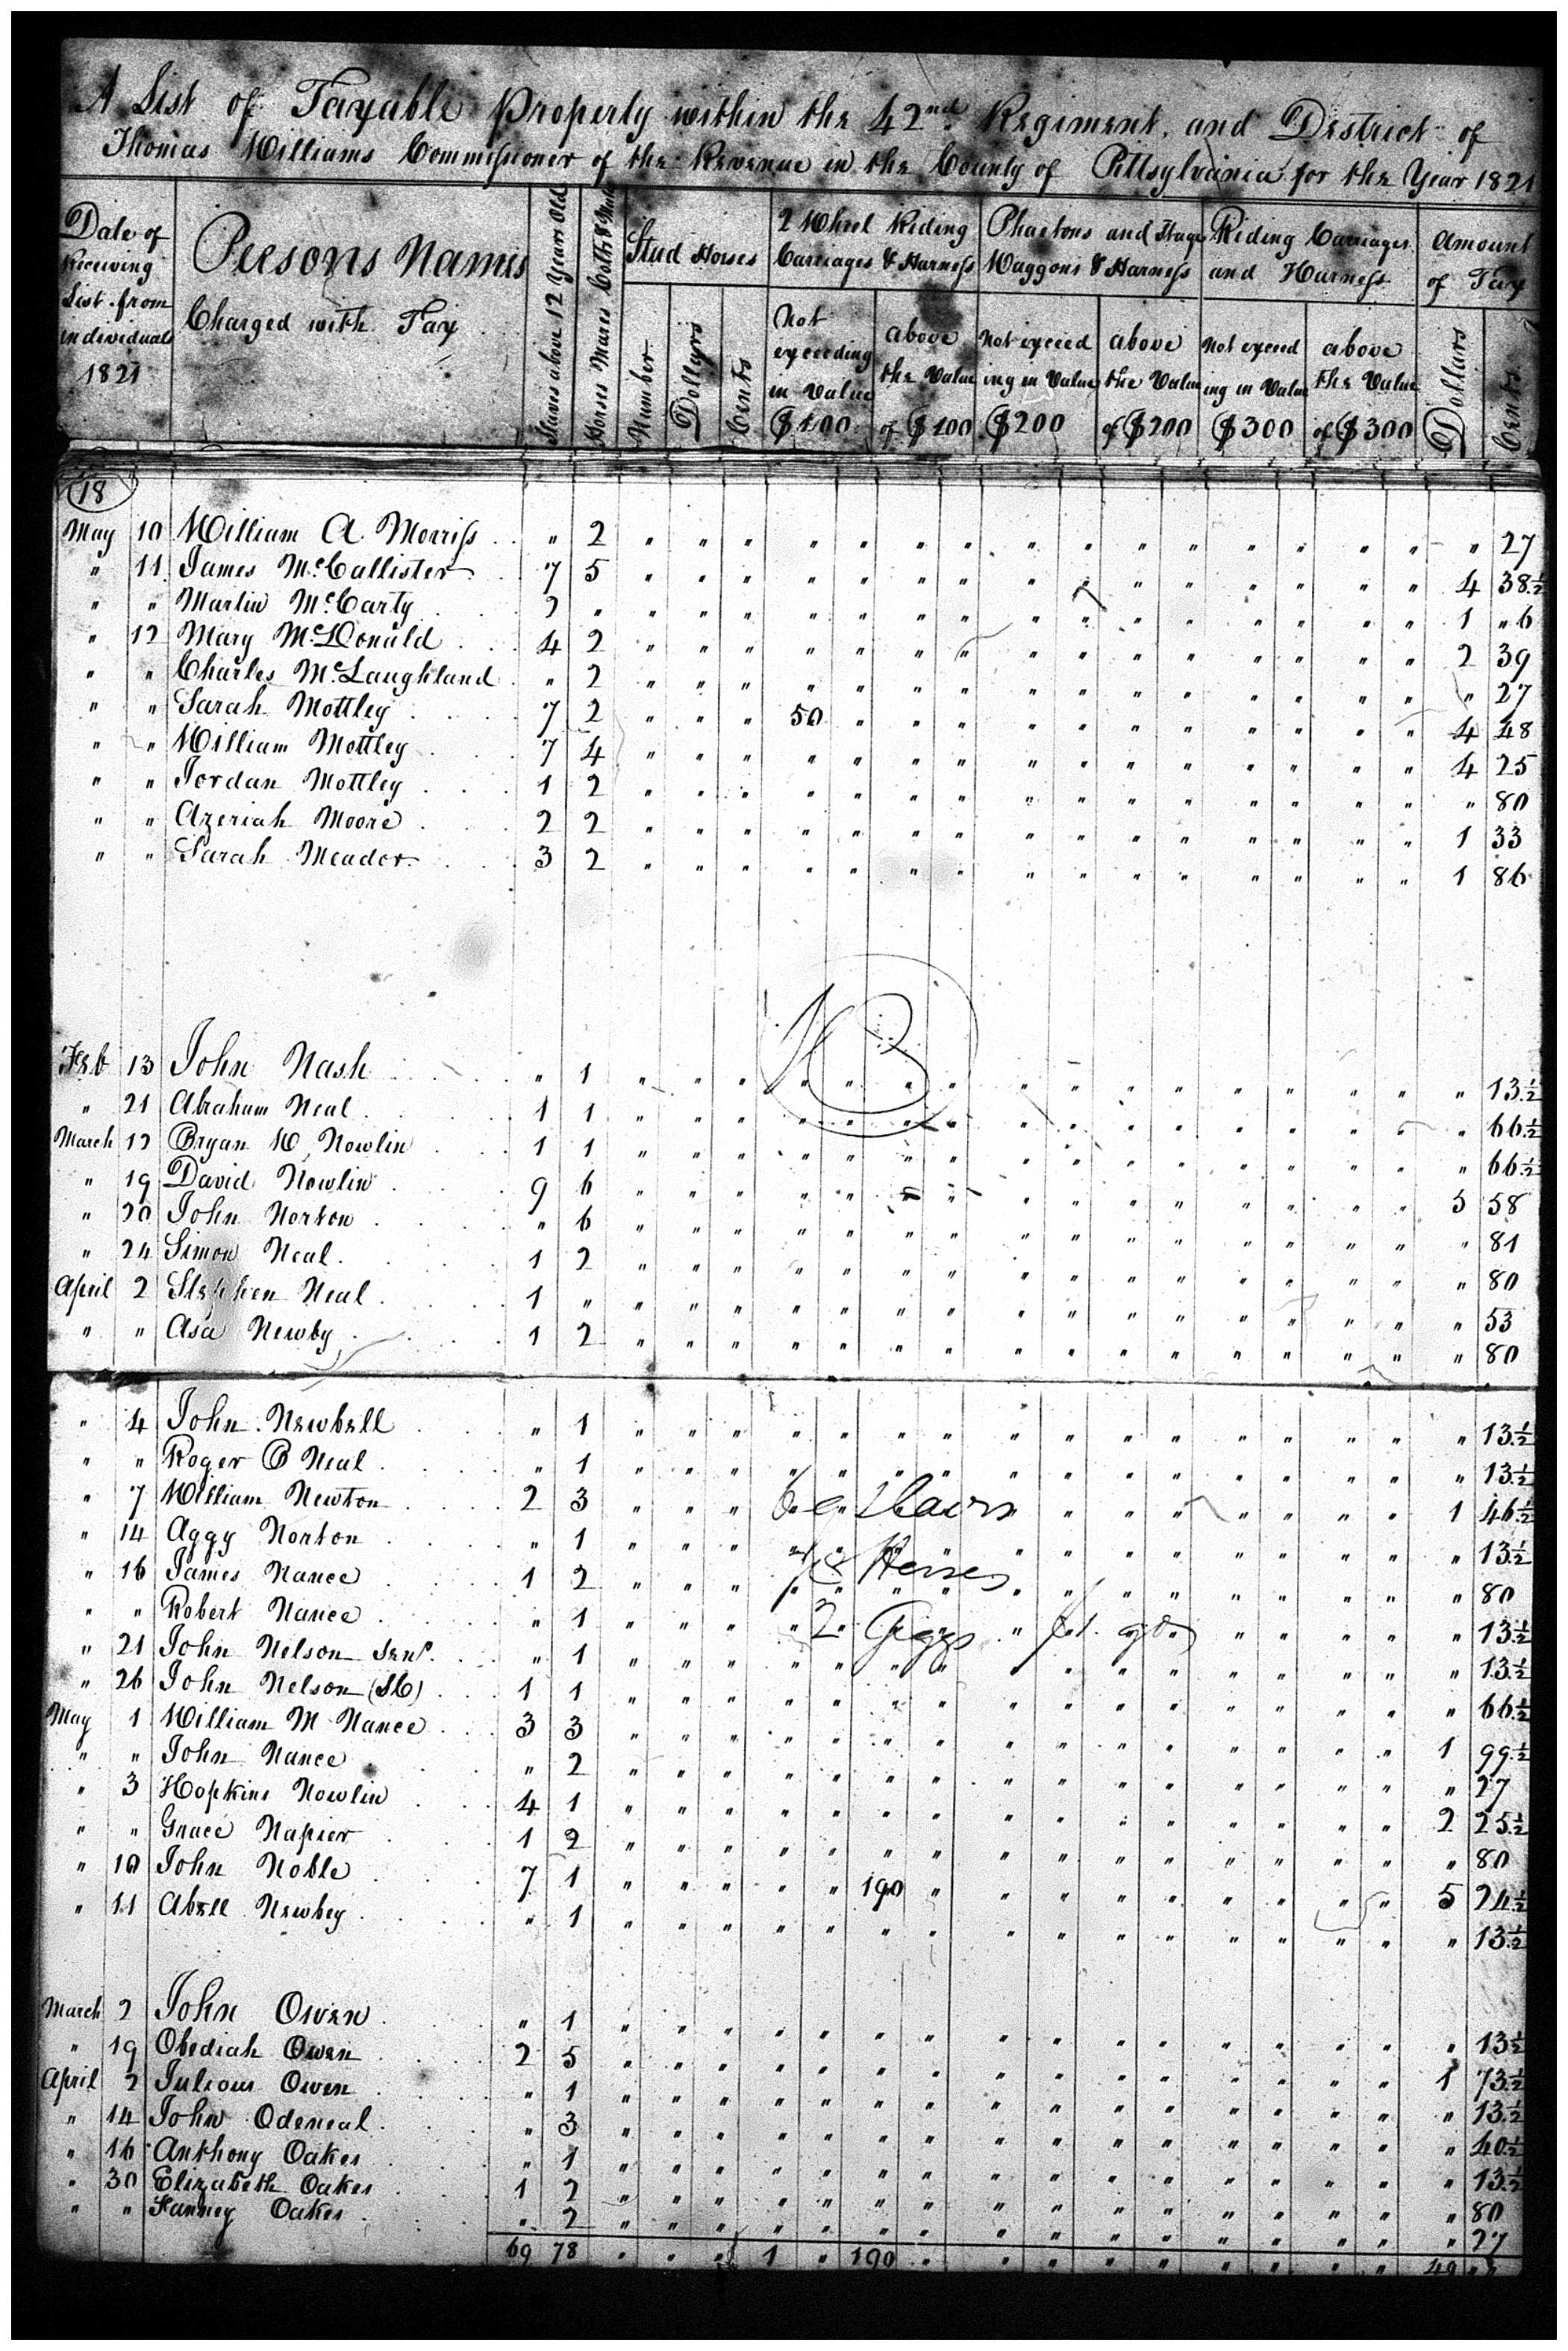 A List of Taxable Property within the 42nd Regiment, and District of
Thomas Williams Commissioner of the Revenue in the County of Pittsylvania for the Year 1821
Date of Receiving List from individuals 1821
Persons Names Charged with Tax
Slaves above 12 Years Old
Horses Mares Colts & Mules
Stud Horses
Number
Dollars
Cents
2 Wheel Riding Carriages & Harness
Not exceeding in Value $100
above the Value of $100
Phaetons and Stage Waggons & Harness
Not exceeding in Value $200
above the Value of $200
Riding Carriages and Harness
Not exceeding in Value $300
above the Value of $300
Amount of Tax
Dollars
Cents
18
May 10 William A. Morriss " 2 " 27
" 11 James McCallister 7 5 4 38½
" " Martin McCarty 2 " 1 "6
" 12 Mary McDonald 4 2 2 39
" " Charles McLaughland " 2 " 27
" " Sarah Mottley 7 2 50 4 48
" " William Mottley 7 4 4 25
" " Jordan Mottley 1 2 " 80
" " Azeriah Moore 2 2 1 33
" " Sarah Meador 3 2 1 86
Feb 13 John Nash " 1 " 13½
" 21 Abraham Neal 1 1 " 66½
March 12 Bryan W Nowlin 1 1 " 66½
" 19 David Nowlin 9 6 5 58
" 20 John Norton " 6 " 81
" 24 Simon Neal 1 2 " 80
April 2 Stephen Neal 1 " " 53
" " Asa Newby 1 2 " 80
" 4 John Newbell " 1 " 13½
" " Roger B Neal " 1 " 13½
" 7 William Newton 2 3 1 46½
" 14 Aggy Norton " 1 " 13½
" 16 James Nance 1 2 " 80
Horses
" " Robert Nance " 1 " 13½
2 Giggs
" 21 John Nelson Senr. " 1 " 13½
" 26 John Nelson (SC) 1 1 " 66½
May 1 William M Nance 3 3 1 99½
" " John Nance " 2 " 27
" 3 Hopkins Nowlin 4 1 2 25½
" " Grace Napier 1 2 " 80
" 10 John Noble 7 1 190 5 74½
" 11 Abell Newbey " 1 " 13½
March 2 John Owen " 1 " 13½
" 19 Obediah Owen 2 5 1 73½
April 2 Julious Owen " 1 " 13½
" 14 John Odeneal " 3 " 40½
" 16 Anthony Oakes " 1 " 13½
" 30 Elizabeth Oakes 1 2 " 80
" " Fanney Oakes " 2 " 27
69 78 1 " 190